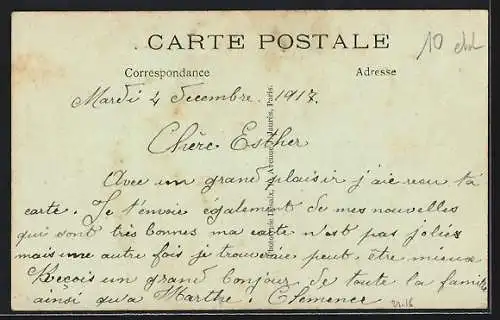 CARTE POSTALE
10
Correspondance
Adresse
Mardi 4 decembre. 1917.
Chère Esther
Avec un grand plaisir j'aie reçu ta
carte. Je t'envoie également de mes nouvelles
qui sont très bonnes ma carte n'est pas jolies
mais une autre fois je trouveraie peut être mieux
Reçois un grand bonjour de toute la famille
ainsi qu'a Marthe. Clemence.
22-16
Phototypie Desaix, Avenue J-Jaurès, Paris.